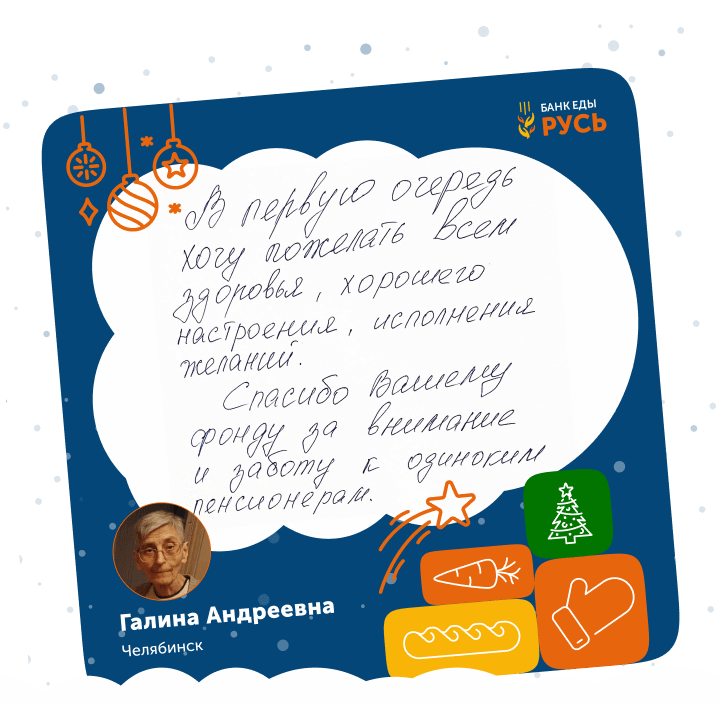 БАНК ЕДЫ
РУСЬ
В первую очередь
хочу пожелать всем
здоровья, хорошего
настроения, исполнения
желаний.
Спасибо Вашему
фонду за внимание
и заботу к одиноким
пенсионерам.
Галина Андреевна
Челябинск